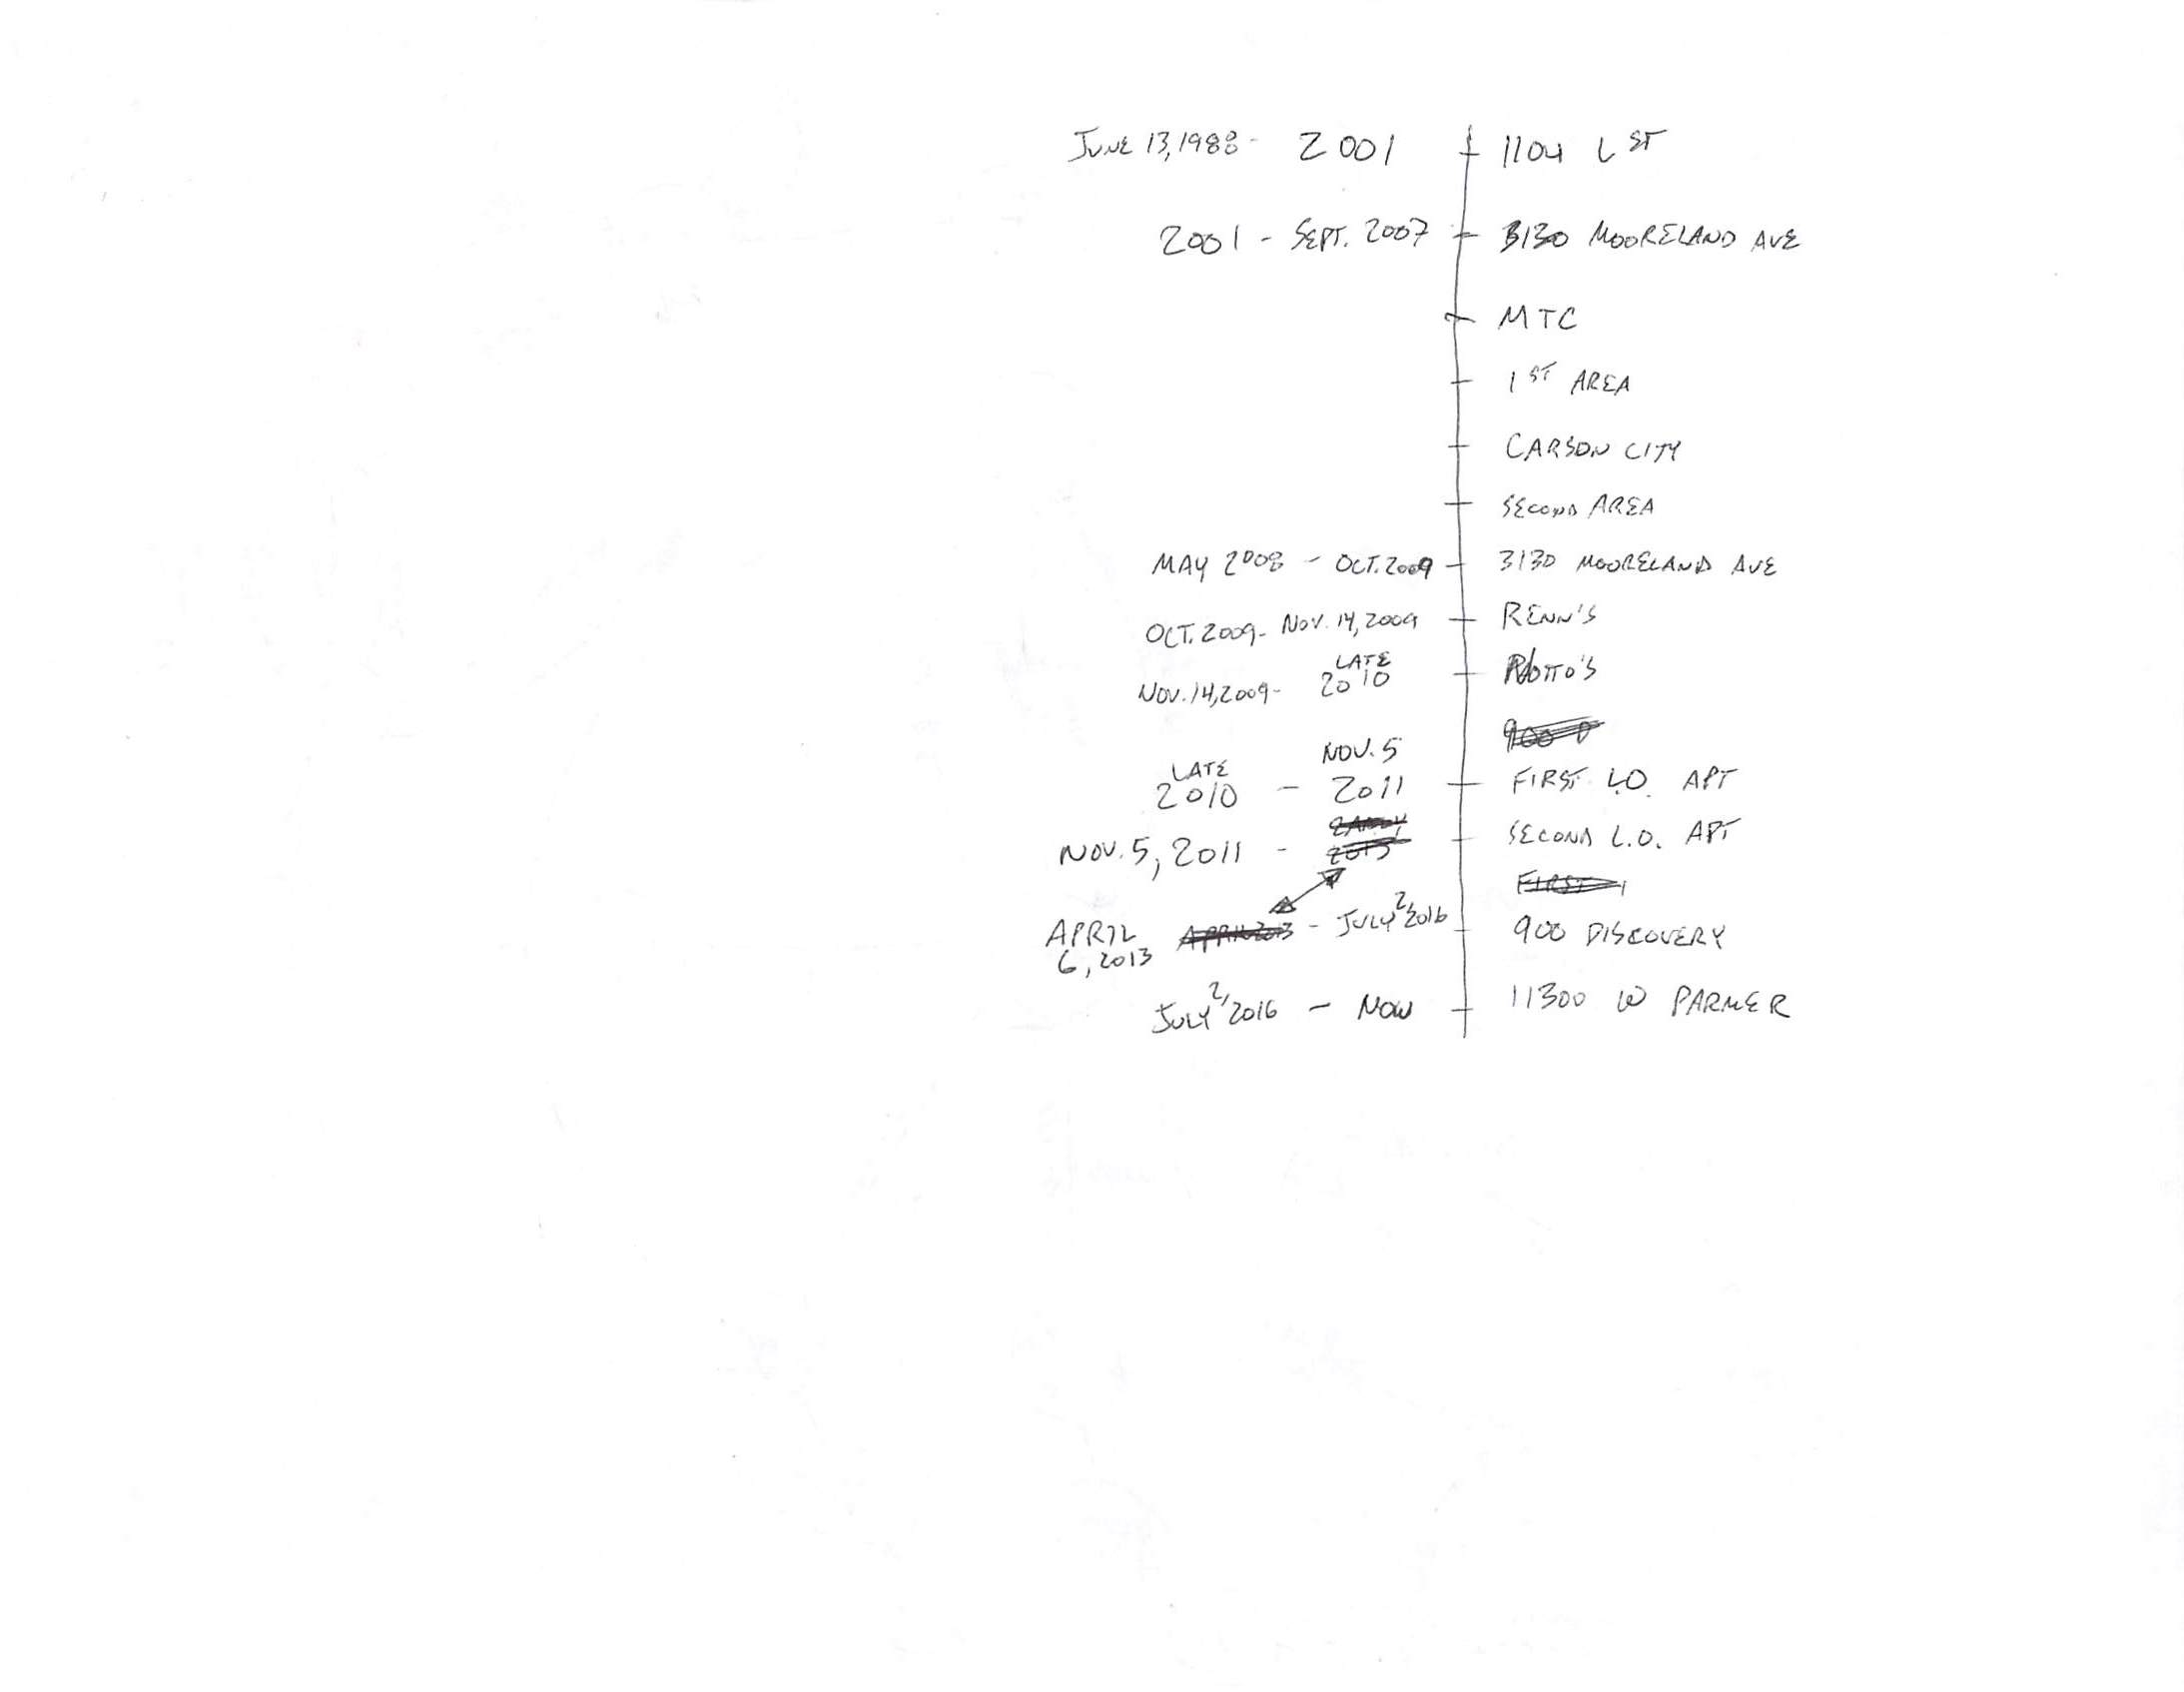 JUNE 13, 1988 - 2001 1104 L ST
2001 - SEPT. 2007 3130 MOORELAND AVE
MTC
1ST AREA
CARSON CITY
SECOND AREA
MAY 2008 - OCT. 2009 3130 MOORELAND AVE
OCT. 2009 - NOV. 14, 2009 RENN'S
NOV. 14, 2009 - LATE 2010
LATE 2010 - NOV. 5 2011 FIRST L.O. APT
NOV. 5, 2011 - SECOND L.O. APT
APRIL 6, 2013 - JULY 2, 2016 900 DISCOVERY
JULY 2, 2016 - NOW 11300 W PARMER